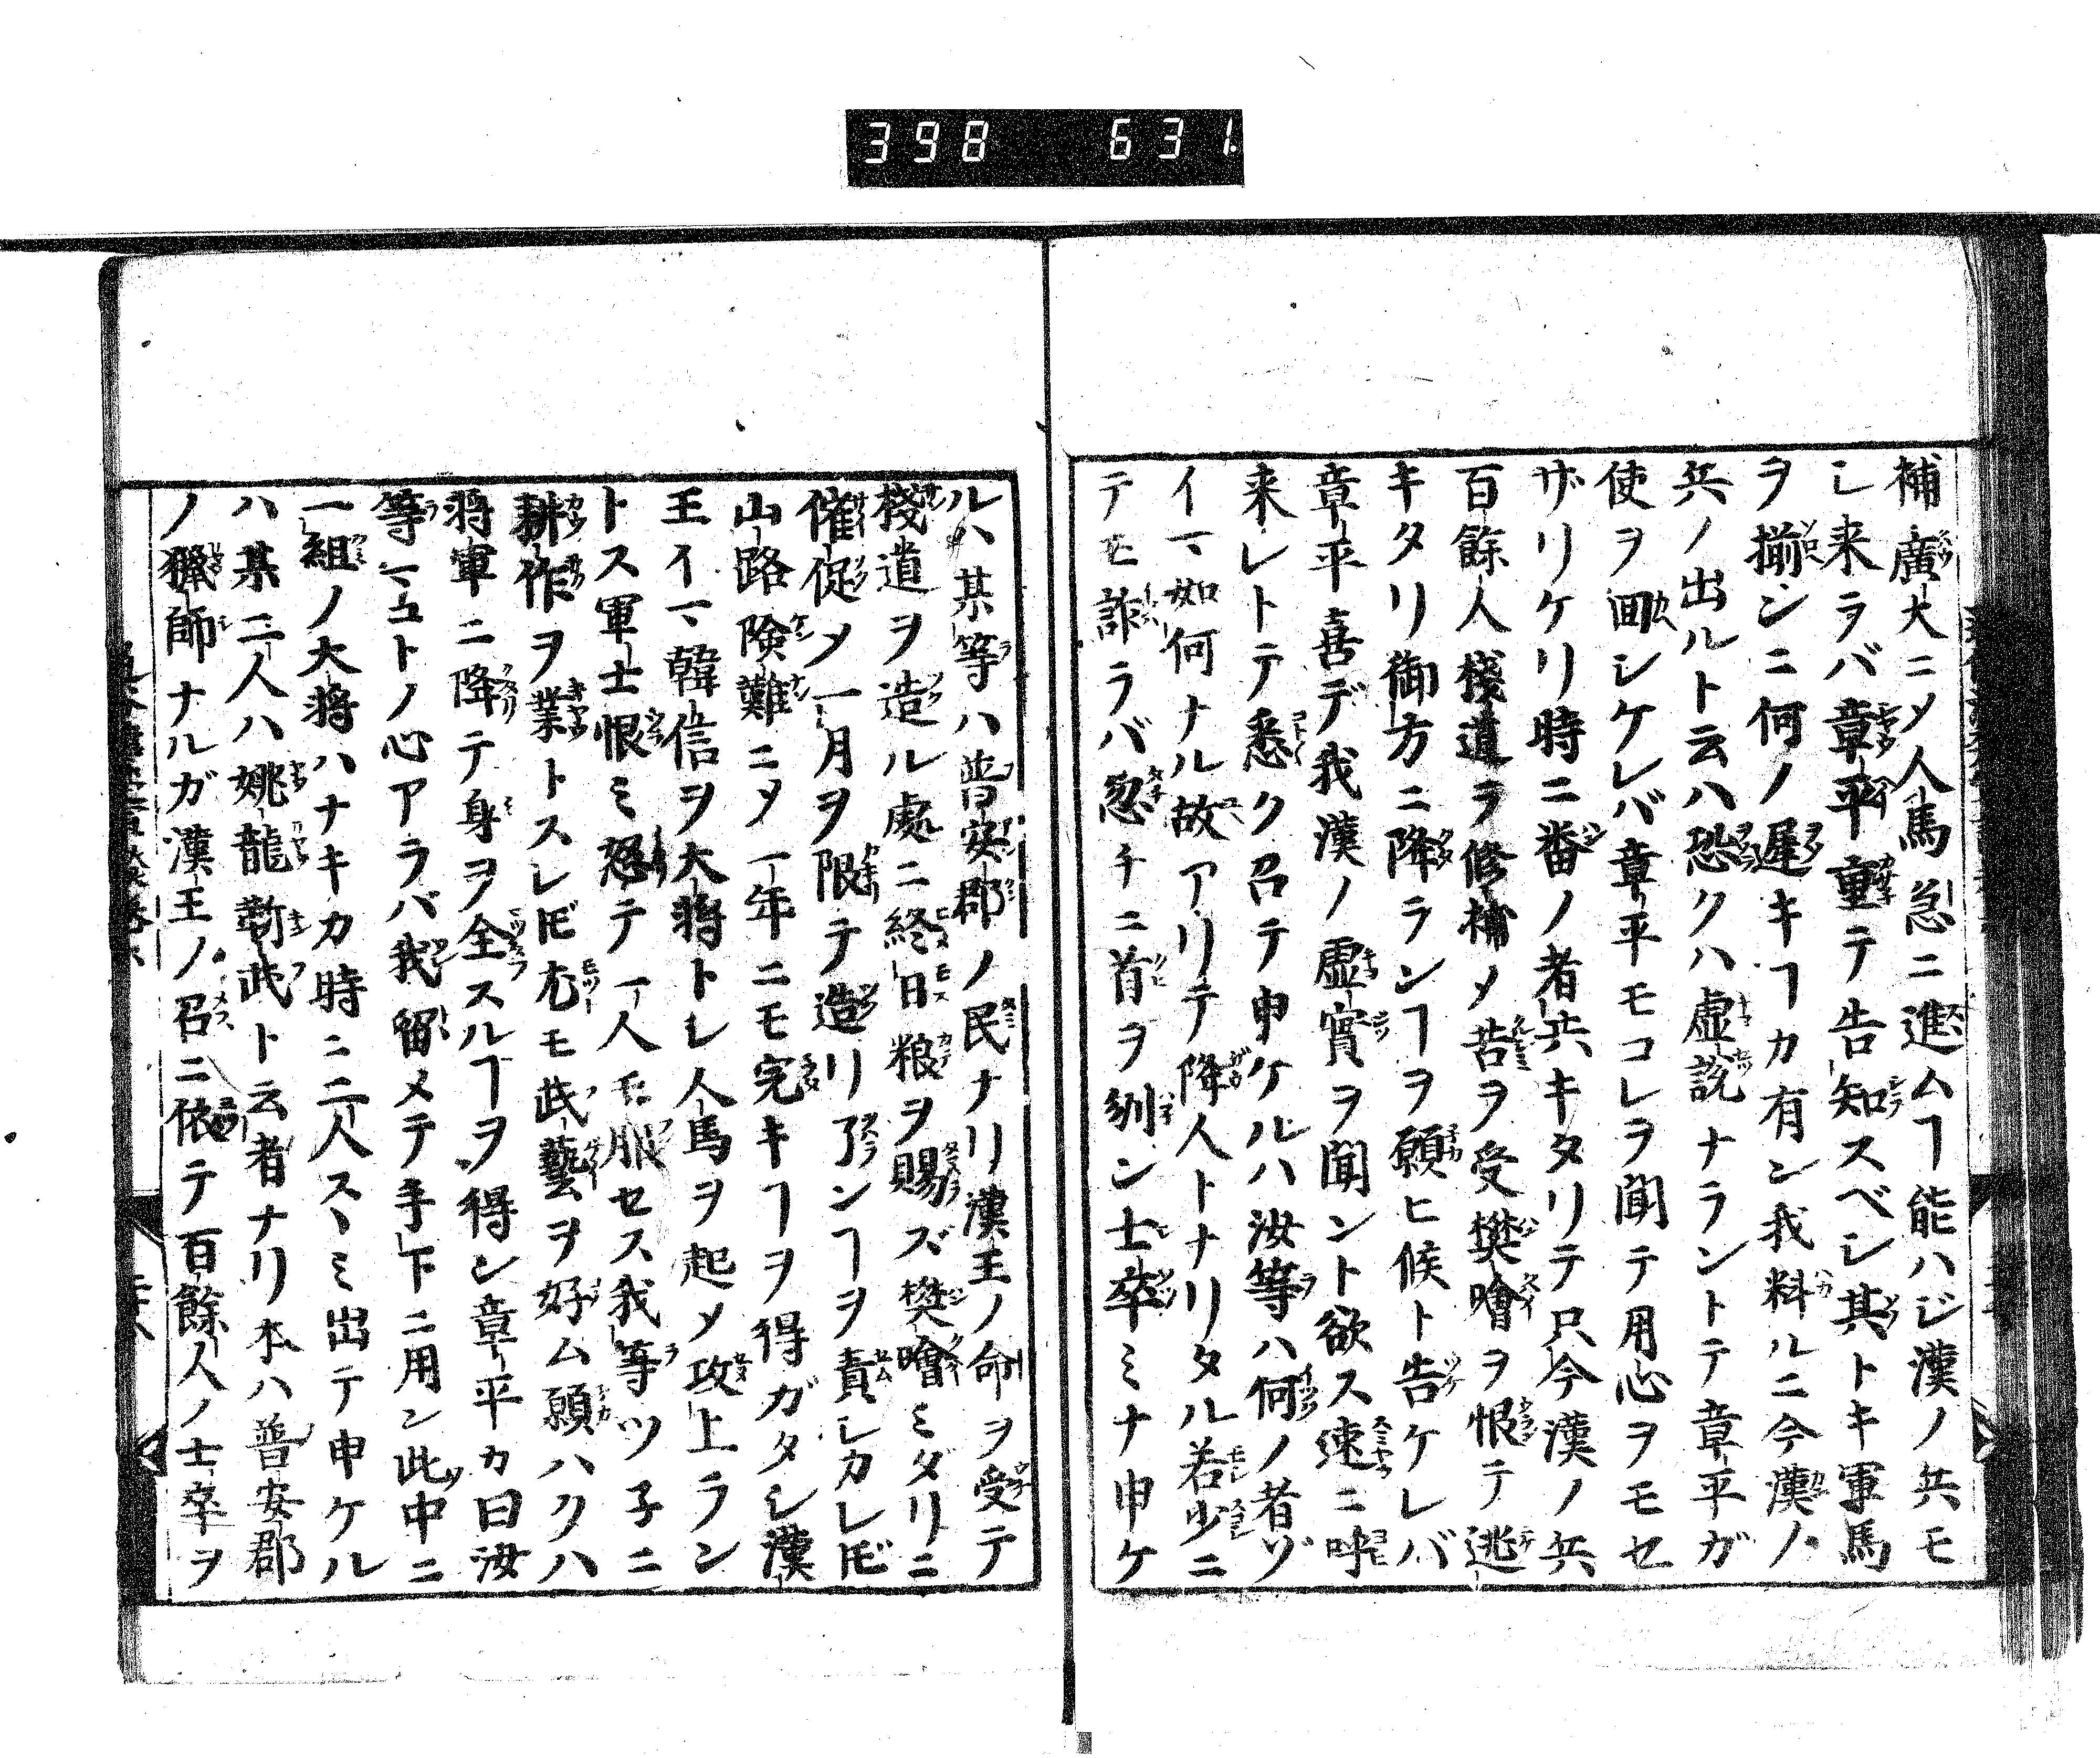 398 631
補廣大ニメ人馬急ニ進ムヿ能ハジ漢ノ兵モ
シ来ラバ章平重テ告知スベシ其トキ軍馬
ヲ揃ンニ何ノ遲キヿカ有ン我料ルニ今漢ノ
兵ノ出ルト云ハ恐クハ虚説ナラントテ章平ガ
使ヲ囬シケレバ章平モコレラ聞テ用心ヲモセ
ザリケリ時ニ畨ノ者共キタリテ只今漢ノ兵
百餘人棧道ラ修補メ苦ヲ受樊噲ヲ恨テ逃
キタリ御方ニ降ランヿヲ願ヒ候ト告ケレバ
章平喜デ我漢ノ虚實ヲ聞ント欲ス速ニ呼
来レトテ悉ク召テ申ケルハ汝等ハ何ノ者ゾ
イマ如何ナル故アリテ降人トナリタル若少ニ
テモ詐ラバ忽チニ首ヲ刎ン士卒ミナ申ケ
ルハ某等ハ普安郡ノ民ナリ漢王ノ命ヲ受テ
棧道ヲ造ル處ニ終日粮ヲ賜ズ樊噲ミダリニ
催促メ一月ヲ限テ造リ了ンヿヲ責シカレ𪜈
山路険難ニメ一年ニモ完キヿヲ得ガタシ漢
王イマ韓信ヲ大将トシ人馬ヲ起メ攻上ラン
トス軍士恨ミ怒テ一人モ服セス我等ツ子ニ
耕作ヲ業トスレ𪜈尤モ武藝ヲ好ム願ハクハ
将軍ニ降テ身ヲ全スルヿヲ得ン章平カ曰汝
等マコトノ心アラバ我留メテ手下ニ用ン此中ニ
一組ノ大将ハナキカ時ニ二人スヽミ出テ申ケル
ハ某二人ハ姚龍靳武ト云者ナリ本ハ普安郡
ノ獵師ナルガ漢王ノ召ニ依テ百餘人ノ士卒ヲ